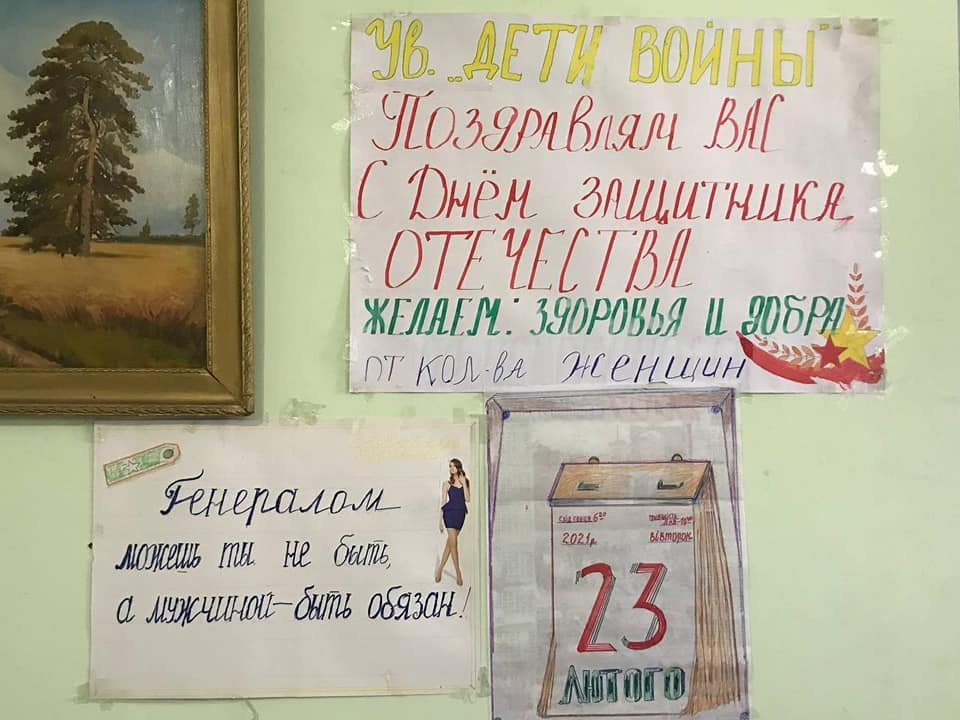 Ув. „ДЕТИ ВОЙНЫ"
ПОЗДРАВЛЯМ ВАС
С ДНЁМ ЗАЩИТНИКА
ОТЕЧЕСТВА
ЖЕЛАЕМ: ЗДОРОВЬЯ И ДОБРА
ОТ КОЛ-ВА ЖЕНЩИН
Генералом
можешь ты не быть,
а мужчиной – быть обязан!
2021р. ВІВТОРОК
23
ЛЮТОГО